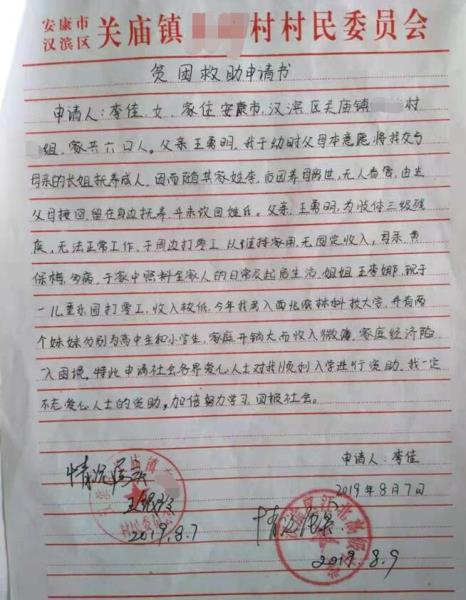 安康市
汉滨区 关庙镇 村村民委员会
贫困救助申请书
申请人:李佳,女,家住安康市,汉滨区关庙镇 村
组,家共六口人。父亲,王勇明,我于幼时父母本意愿,将我交与
母亲的长姐抚养成人,因而随其家姓李,后因养母离世,无人看管,由生
父母接回,留在身边抚养,并未改回姓氏。父亲,王勇明,为肢体三级残
疾,无法正常工作,于周边打零工,以维持家用,无固定收入,母亲,黄
保梅,多病,于家中照料全家人的日常及起居生活,姐姐王李娜,现于
一儿童乐园打零工,收入较低,今年我考入西北农林科技大学,并有两
个妹妹分别为高中生和小学生,家庭开销大而收入微薄,家庭经济陷
入困境。特此申请社会各界爱心人士对我顺利入学进行资助。我一定
不忘爱心人士的资助。加倍努力学习,回报社会。
申请人:李佳
2019年8月7日
情况属实
村民委员会
2019.8.7
情况属实
2019.8.9